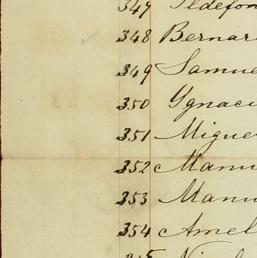 347 Ildefon
348 Bernar
349 Samue
350 Ygnaci
351 Migue
352 Manu
353 Manu
354 Amel